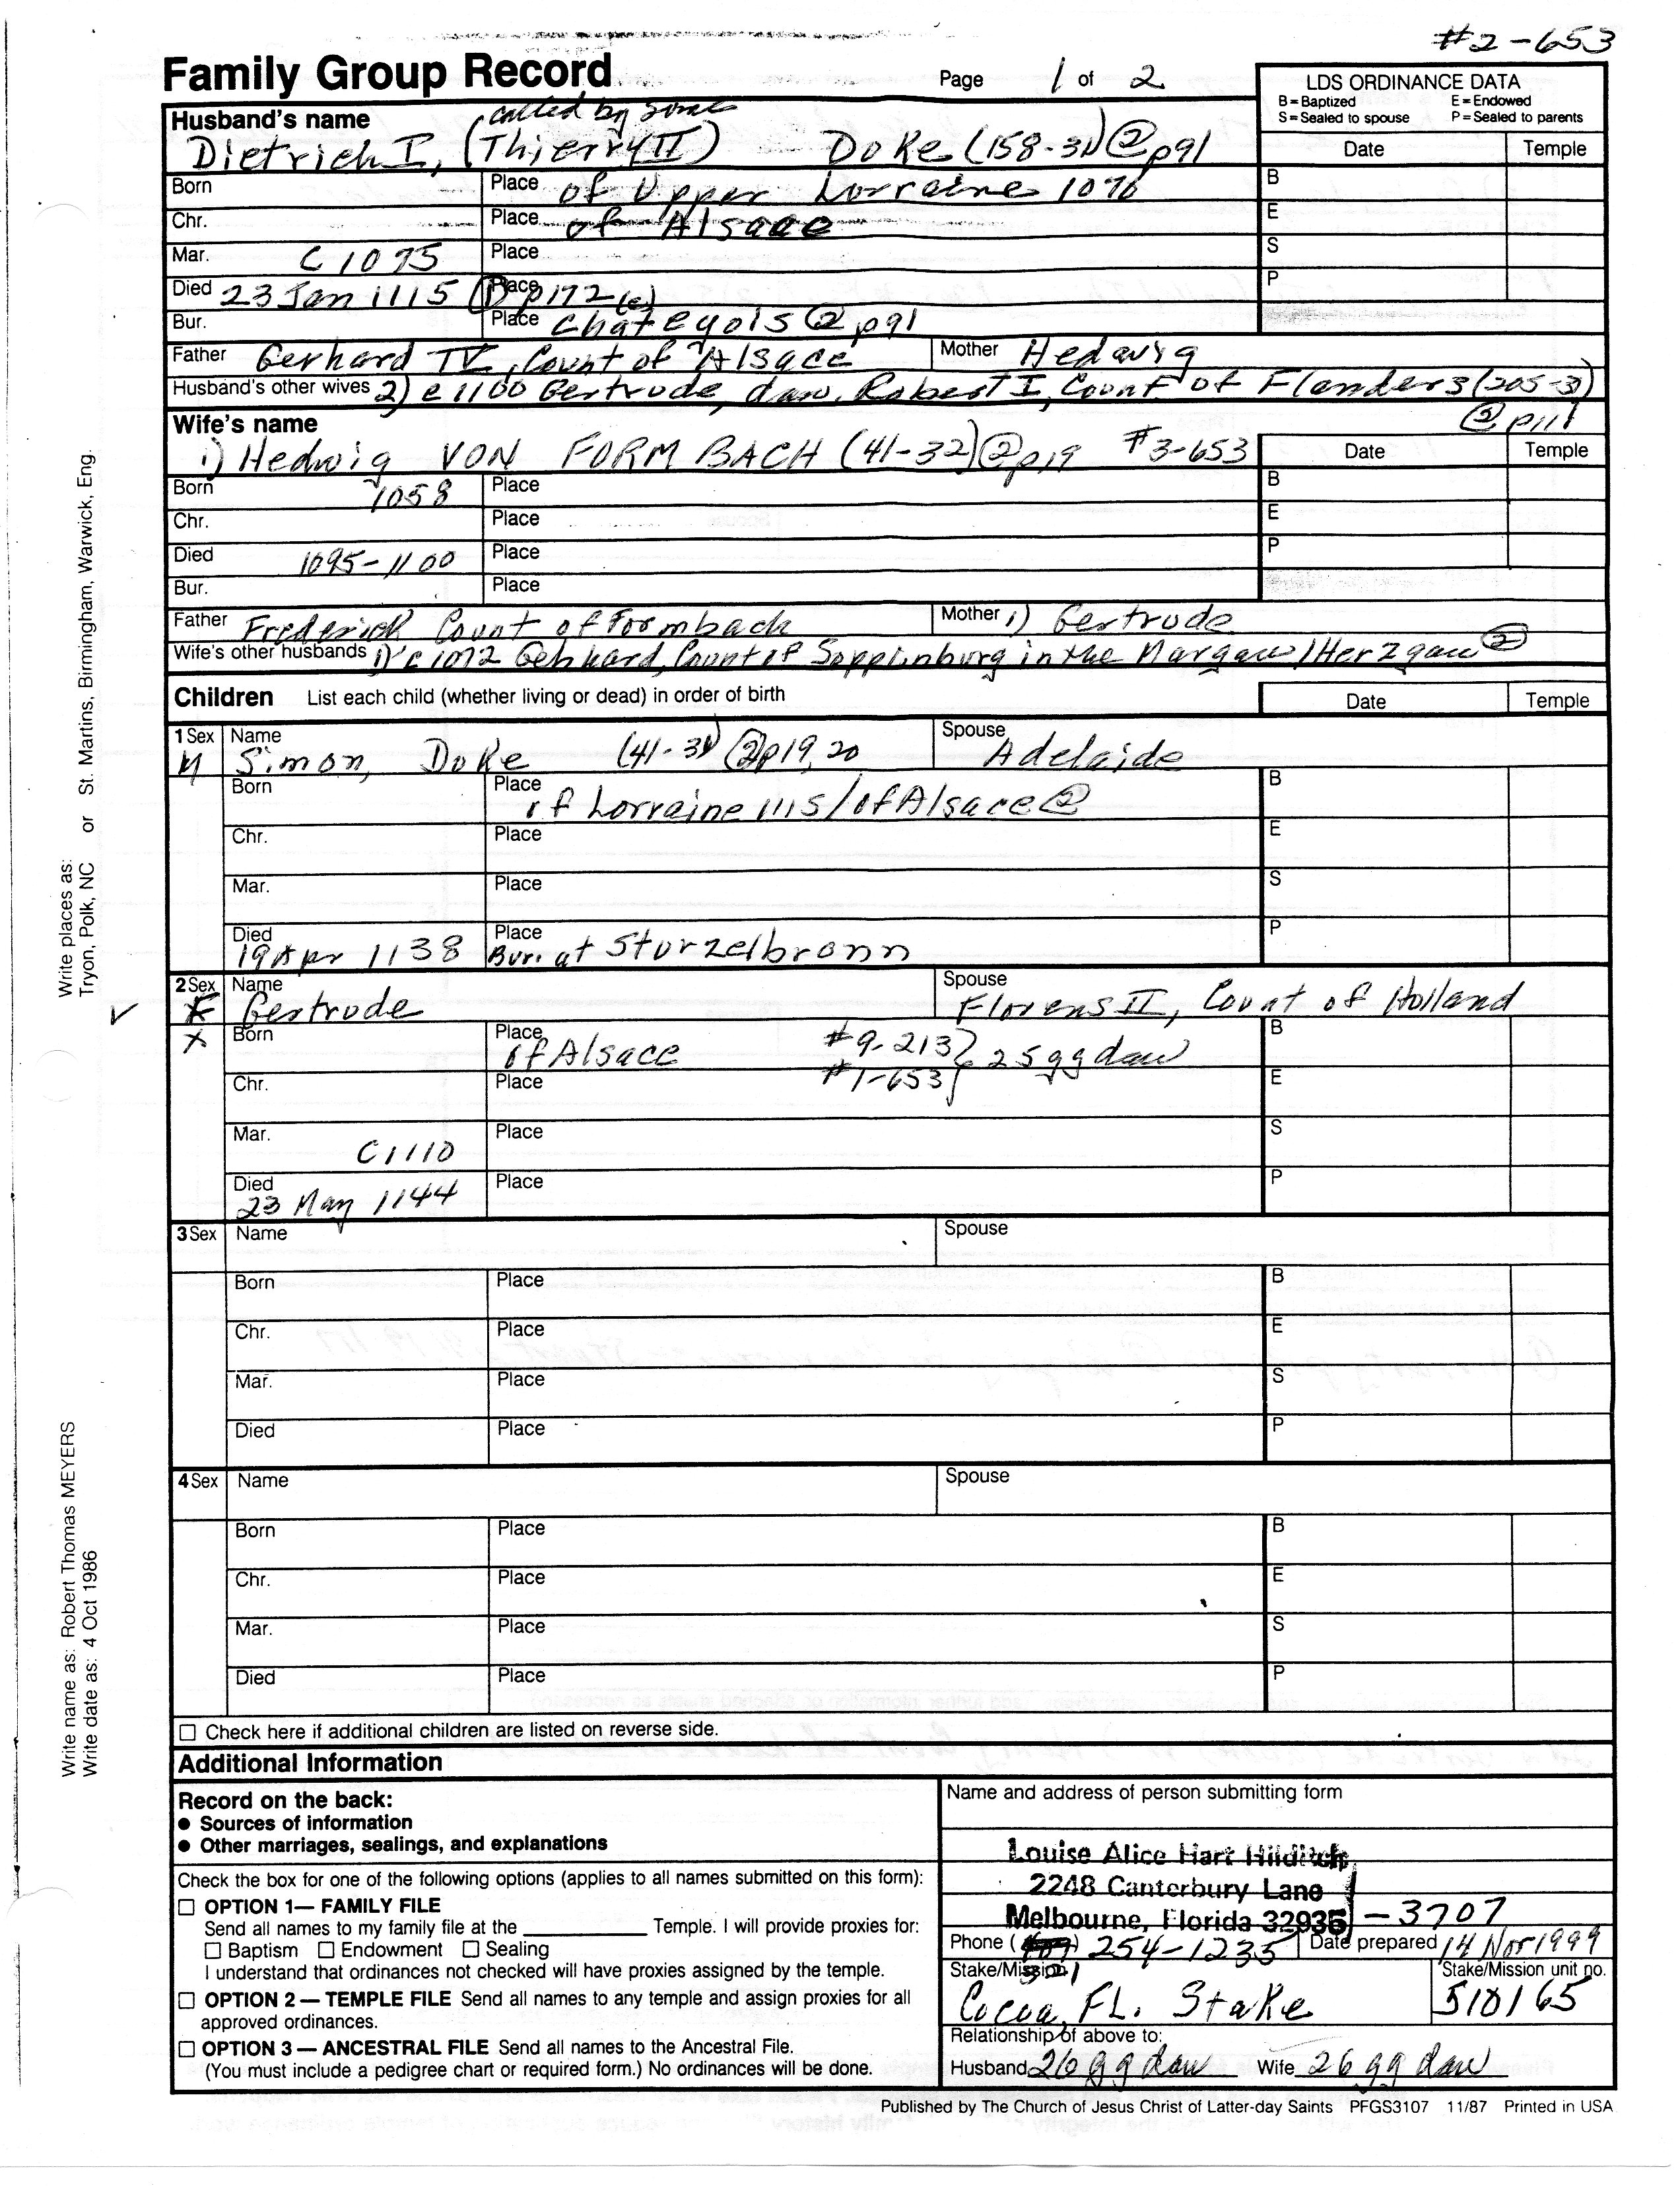 #2-653
Family Group Record
Page 1 of 2
LDS ORDINANCE DATA
B = Baptized E = Endowed
S = Sealed to spouse P = Sealed to parents
Date Temple
Husband's name called by some
Dietrich I, (Thierry II) Duke (158-31) ② p91
Born Place of Upper Lorraine 1076 B
Chr. Place of Alsace E
Mar. C 1075 Place S
Died 23 Jan 1115 ① p172 (e) Place P
Bur. Place Chateyois ② p91
Father Gerhard IV, Count of Alsace Mother Hedwig
Husband's other wives 2) c 1100 Gertrude, dau. Robert I, Count of Flanders (205-3)
② p111
Wife's name
1) Hedwig VON FORMBACH (41-32) ② p19 #3-653
Date Temple
Born 1058 Place B
Chr. Place E
Died 1095-1100 Place P
Bur. Place
Father Frederick Count of Formbach Mother 1) Gertrude
Wife's other husbands 1) c 1072 Gebhard, Count of Supplinburg in the Hargau/Herzgau ②
Children List each child (whether living or dead) in order of birth Date Temple
1 Sex Name Spouse
M Simon, Duke (41-31) ② p19, 20 Adelaide
Born Place of Lorraine 1115/of Alsace ② B
Chr. Place E
Mar. Place S
Died 19 Apr 1138 Place Bur. at Sturzelbronn P
2 Sex Name Spouse
F Gertrude Florens II, Count of Holland
X Born Place of Alsace #9-213 } 25 gg dau B
Chr. Place #1-653 E
Mar. C 1110 Place S
Died 23 May 1144 Place P
3 Sex Name Spouse
Born Place B
Chr. Place E
Mar. Place S
Died Place P
4 Sex Name Spouse
Born Place B
Chr. Place E
Mar. Place S
Died Place P
☐ Check here if additional children are listed on reverse side.
Additional Information
Record on the back:
● Sources of information
● Other marriages, sealings, and explanations
Check the box for one of the following options (applies to all names submitted on this form):
☐ OPTION 1— FAMILY FILE
Send all names to my family file at the ____________ Temple. I will provide proxies for:
☐ Baptism ☐ Endowment ☐ Sealing
I understand that ordinances not checked will have proxies assigned by the temple.
☐ OPTION 2 — TEMPLE FILE Send all names to any temple and assign proxies for all
approved ordinances.
☐ OPTION 3 — ANCESTRAL FILE Send all names to the Ancestral File.
(You must include a pedigree chart or required form.) No ordinances will be done.
Name and address of person submitting form
Louise Alice Hart Hilditch
2248 Canterbury Lane
Melbourne, Florida 32935 -3707
Phone ( 321 ) 254-1235 Date prepared 14 Nov 1999
Stake/Mission Stake/Mission unit no.
Cocoa, FL. Stake 510165
Relationship of above to:
Husband 26 gg dau Wife 26 gg dau
Published by The Church of Jesus Christ of Latter-day Saints PFGS3107 11/87 Printed in USA
Write places as:
Tryon, Polk, NC or St. Martins, Birmingham, Warwick, Eng.
Write name as: Robert Thomas MEYERS
Write date as: 4 Oct 1986